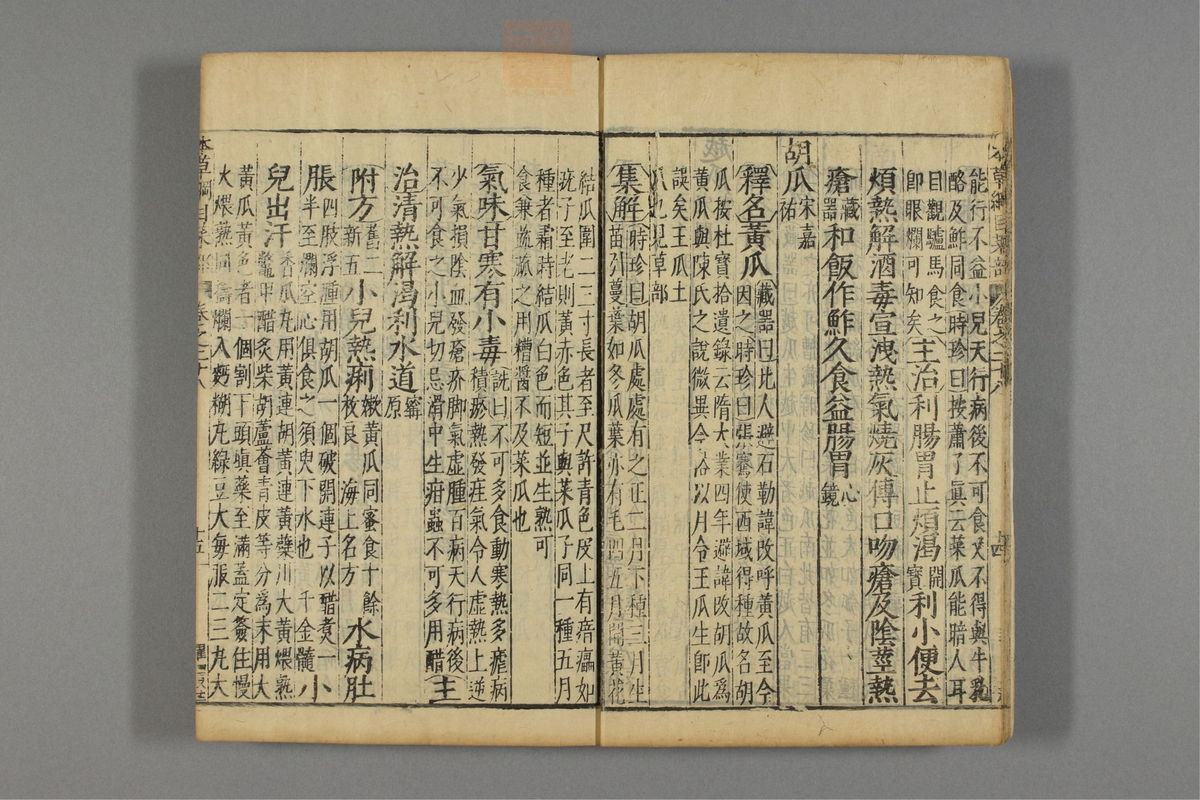 能行不益小兒天行病後不可食又不得與牛乳
酪及鮓同食時珍曰按蕭了真云菜瓜能暗人耳
目觀驢馬食之
卽眼爛可知矣主治利腸胃止煩渴開寶利小便去
煩熱解酒毒宣洩熱氣燒灰傅口吻瘡及陰莖熱
瘡藏器和飯作鮓久食益腸胃心鏡
胡瓜宋嘉祐
釋名黃瓜藏器曰北人避石勒諱改呼黃瓜至今
因之時珍曰張騫使西域得種故名胡
瓜按杜寶拾遺錄云隋大業四年避諱改胡瓜爲
黃瓜與陳氏之說微異今俗以月令王瓜生卽此
誤矣王瓜土
瓜也見草部
集解時珍曰胡瓜處處有之正二月下種三月生
苗引蔓葉如冬瓜葉亦有毛四五月開黃花
結瓜圍二三寸長者至尺許青色皮上有㾦㿔如
疣子至老則黃赤色其子與菜瓜子同一種五月
種者霜時結瓜白色而短並生熟可
食兼蔬蓏之用糟醬不及菜瓜也
氣味甘寒有小毒詵曰不可多食動寒熱多瘧病
積瘀熱發疰氣令人虛熱上逆
少氣損陰血發瘡疥脚氣虛腫百病天行病後
不可食之小兒切忌滑中生疳蟲不可多用醋主
治清熱解渴利水道甯原
附方舊二新五小兒熱痢嫩黃瓜同蜜食十餘枚良海上名方水病肚
脹四肢浮腫用胡瓜一個破開連子以醋煮一
半至爛空心俱食之須臾下水也千金髓小
兒出汗香瓜丸用黃連胡黃連黃蘗川大黃煨熟
鱉甲醋炙柴胡蘆薈青皮等分爲末用大
黃瓜黃色者一個割下頭塡藥至滿蓋定簽住慢
火煨熟同搗爛入麪糊丸綠豆大每服二三丸大